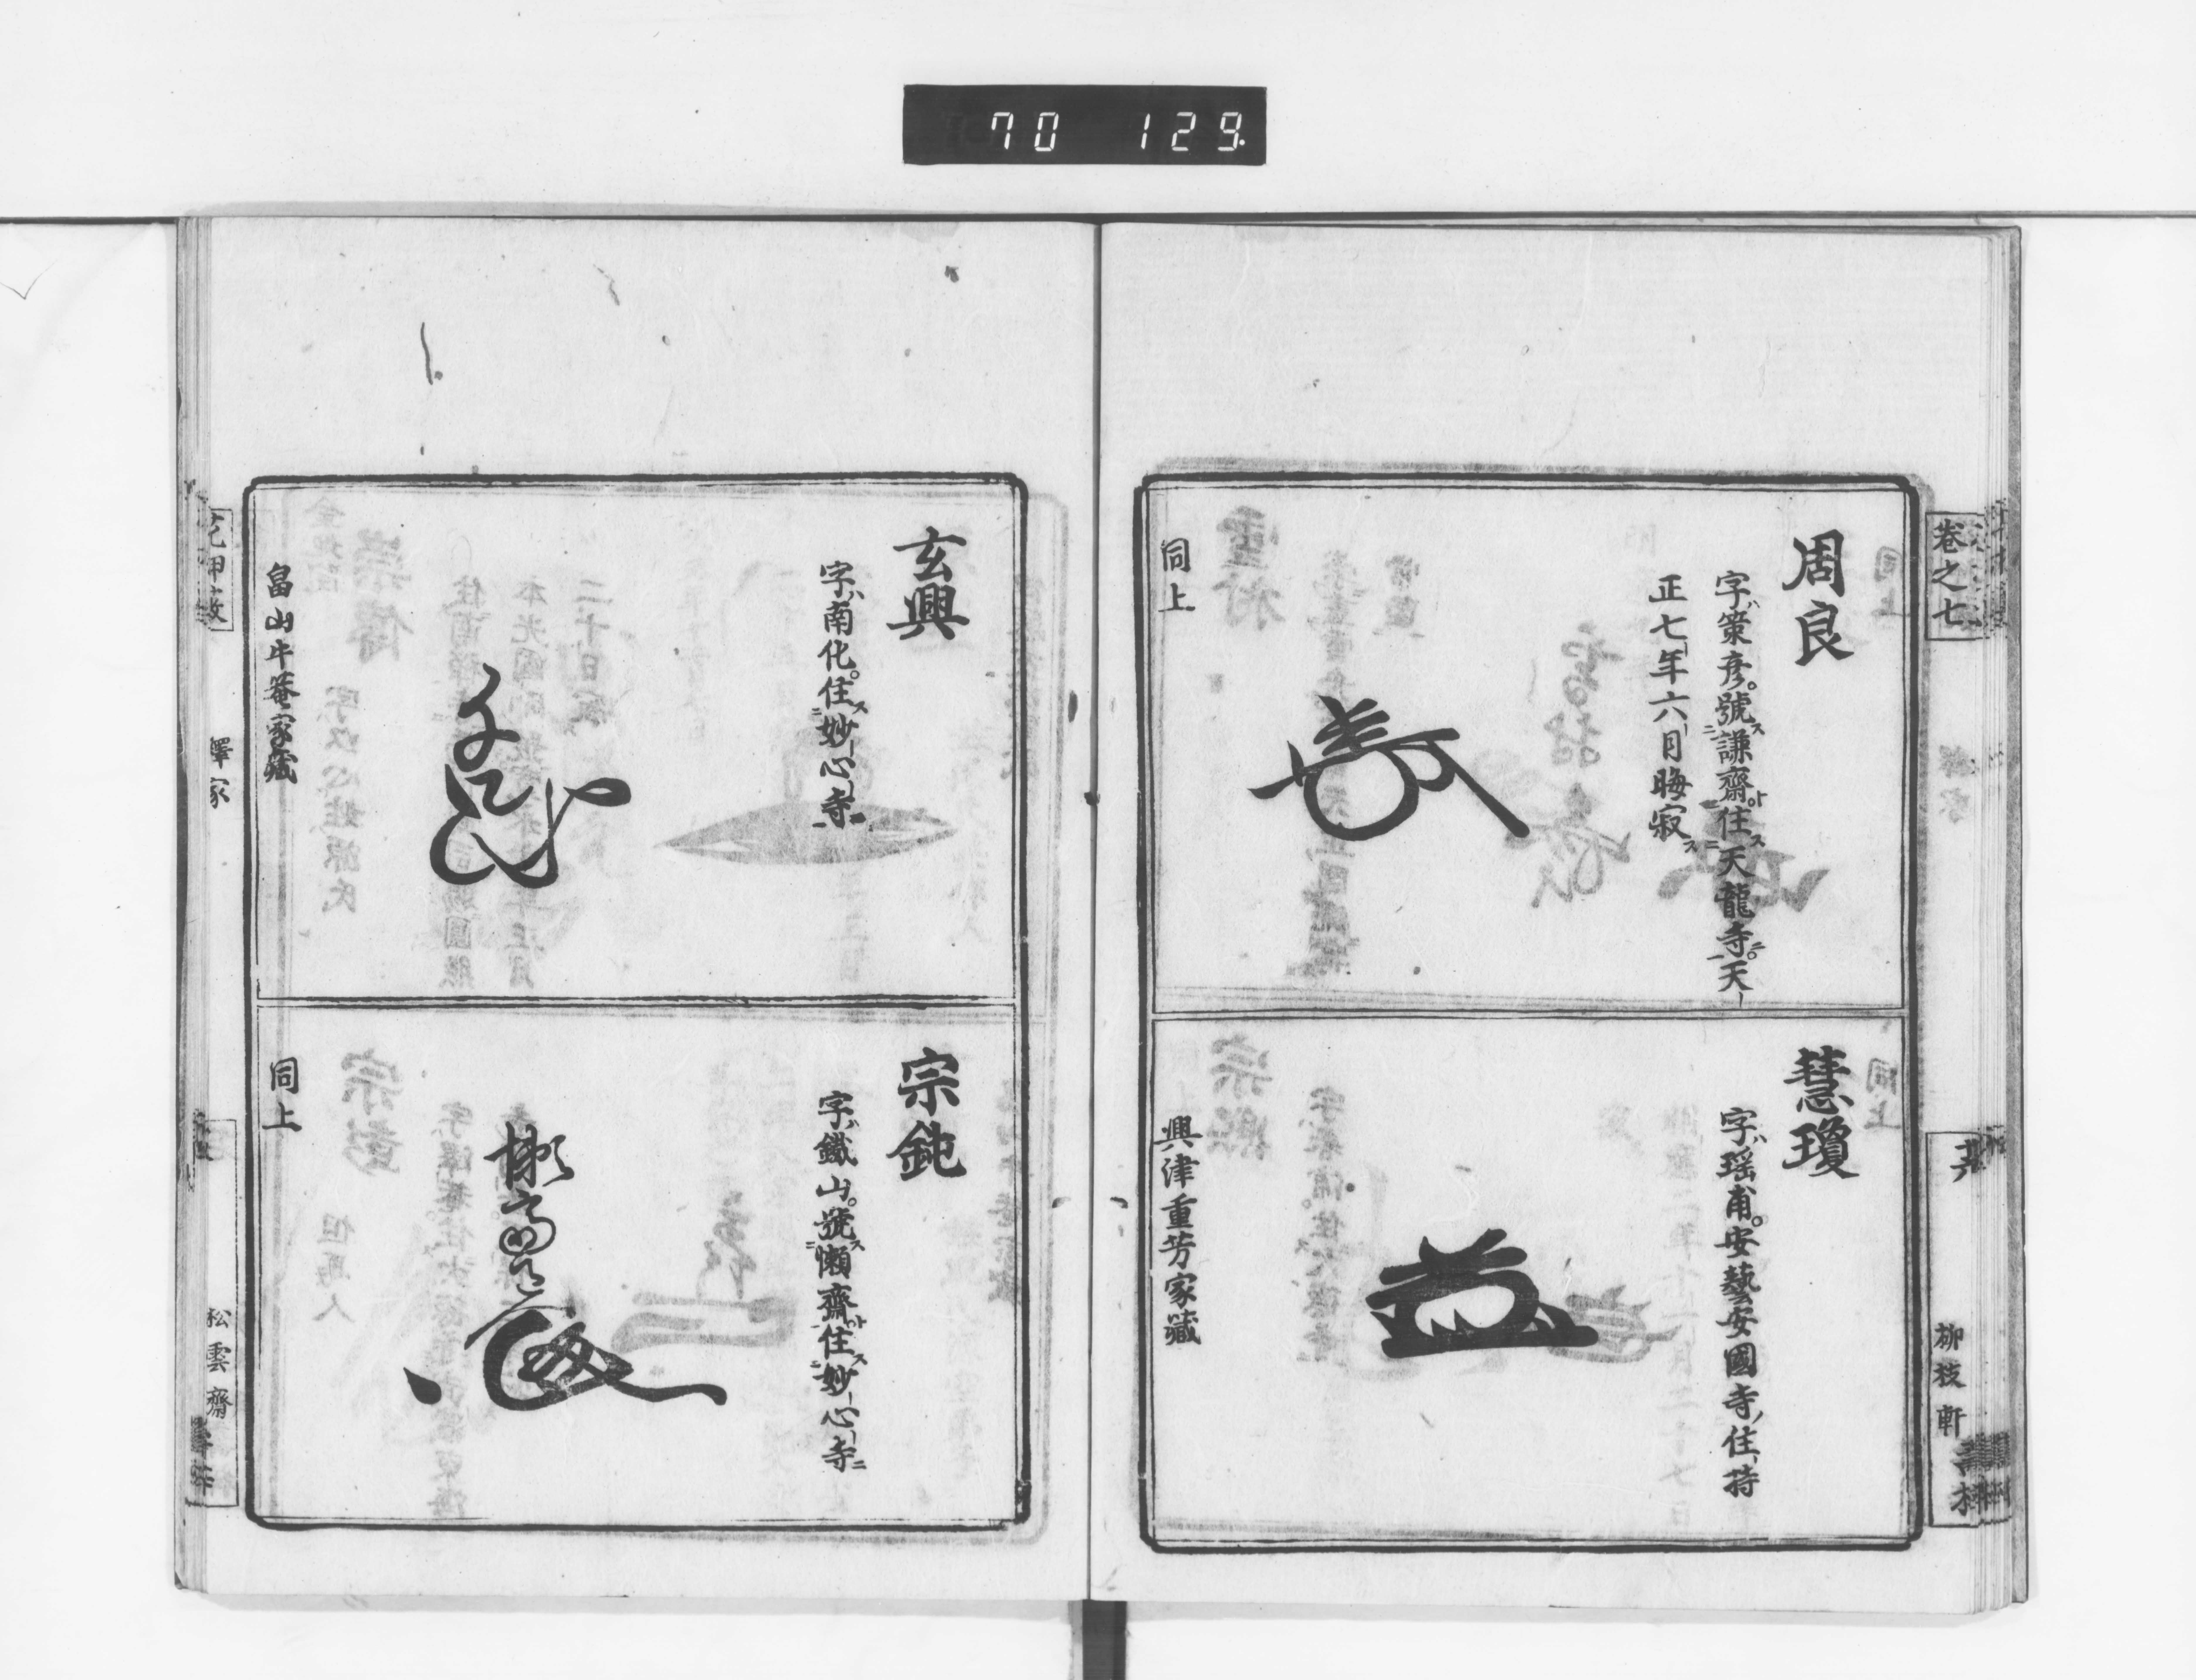 70 129
卷之七
柳枝軒
周良
字策彦。號謙齋住天龍寺。天
正七年六月晦寂
同上
慧瓊
字瑶甫。安藝安國寺住持
興津重芳家藏
玄興
字南化。住妙心寺
畠山牛菴家藏
宗鈍
字鐵山。號懶齋住妙心寺
同上
釋家
松雲齋